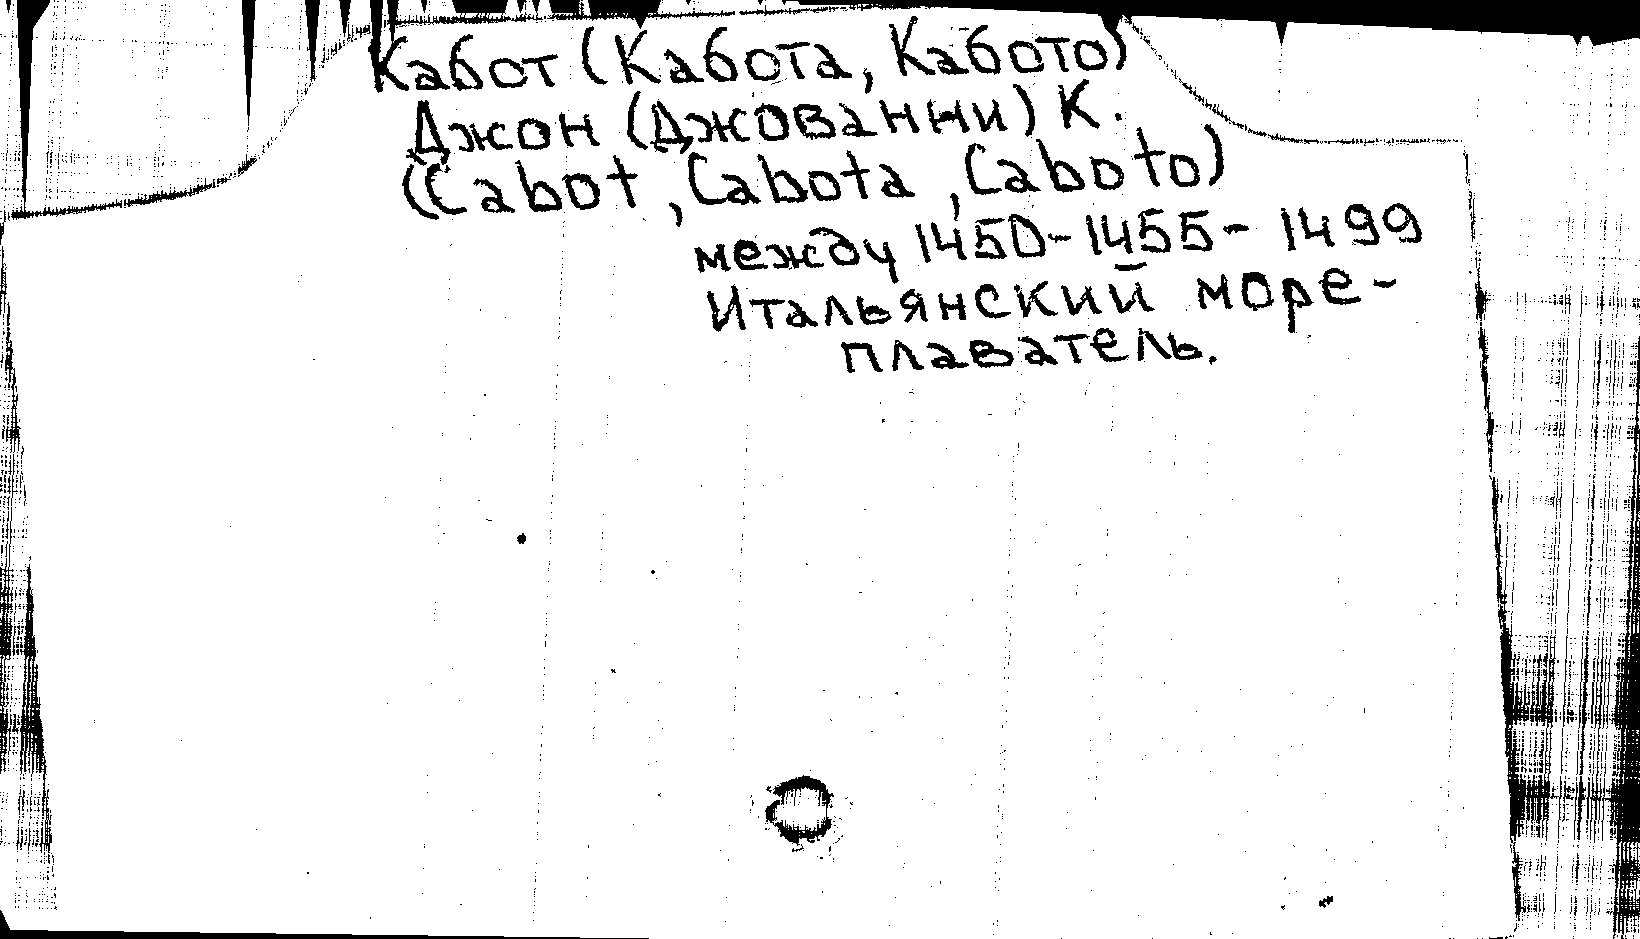 Кабот (Кабота, Кабото)
Джон (Джованни) К.
(Cabot, Cabota, Caboto)
между 1450-1455- 1499
Итальянский море-
плаватель.